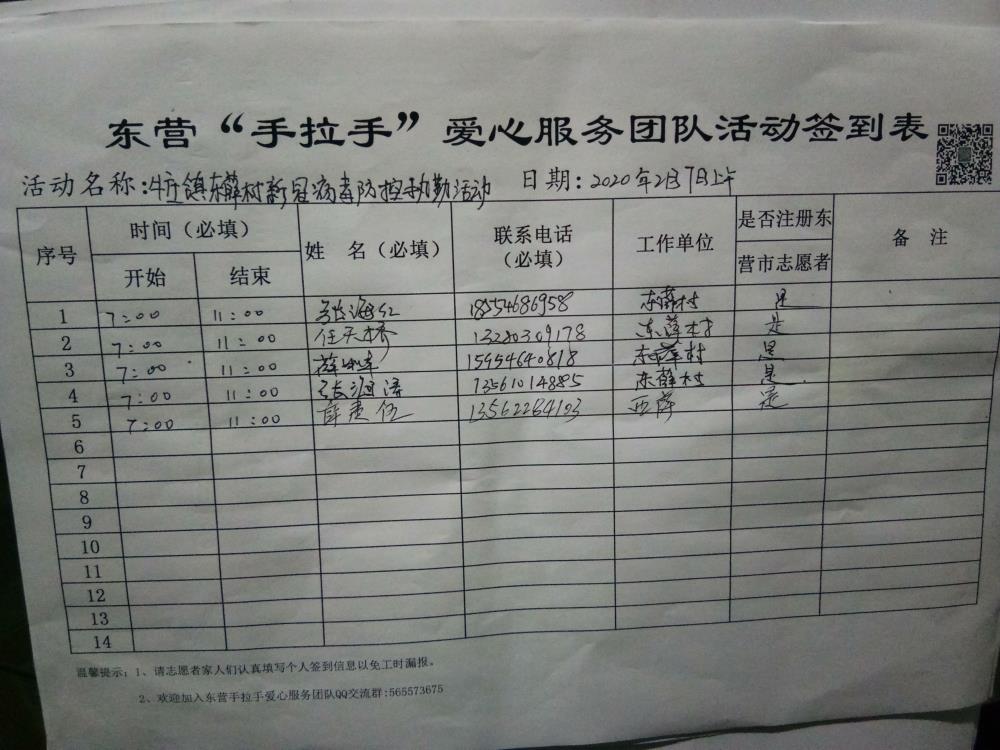 东营“手拉手”爱心服务团队活动签到表
活动名称:牛庄镇东薛村新冠病毒防控执勤活动 日期:2020年2月7日上午
序号 时间（必填） 姓 名（必填） 联系电话（必填） 工作单位 是否注册东营市志愿者 备 注
开始 结束
1 7:00 11:00 张海红 18554686958 东薛村 是
2 7:00 11:00 任天桥 13280309178 东薛村 是
3 7:00 11:00 薛 15954640818 东薛村 是
4 7:00 11:00 张洄济 13561014885 东薛村 是
5 7:00 11:00 薛贵伍 13562264103 西薛 是
6
7
8
9
10
11
12
13
14
温馨提示：1、请志愿者家人们认真填写个人签到信息以免工时漏报。
2、欢迎加入东营手拉手爱心服务团队QQ交流群:565573675